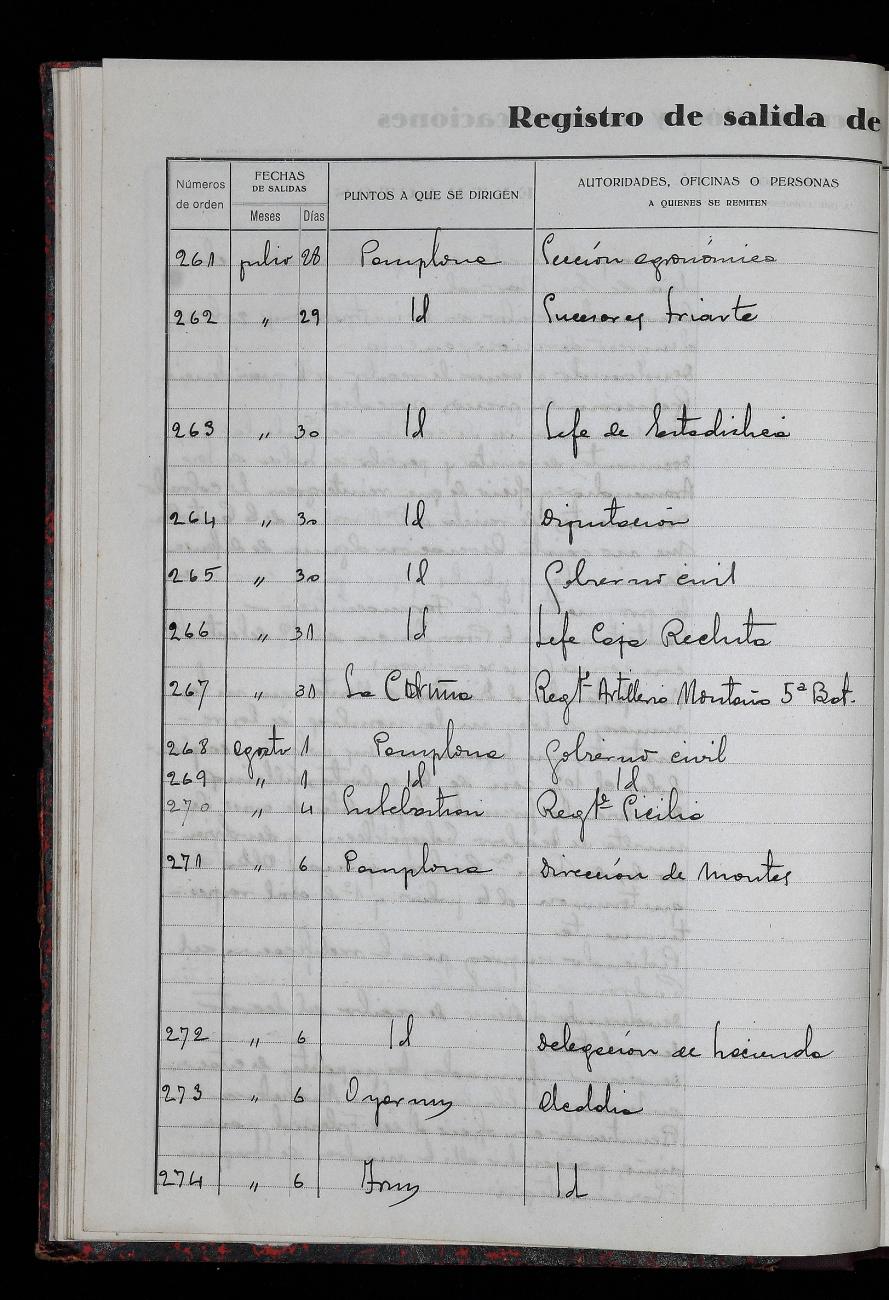 Registro de salida de
Números de orden
FECHAS DE SALIDAS
Meses Días
PUNTOS A QUE SE DIRIGEN
AUTORIDADES, OFICINAS O PERSONAS
A QUIENES SE REMITEN
261 julio 28 Pamplona Sección agronómica
262 " 29 Id Sucesores Iriarte
263 " 30 Id Jefe de Estadística
264 " 30 Id Diputación
265 " 30 Id Gobierno civil
266 " 31 Id Jefe Caja Recluta
267 " 31 La Coruña Regtº Artilleria Montaña 5ª Bat.
268 agosto 1 Pamplona Gobierno civil
269 " 1 Id Id
270 " 4 Regtº Sicilia
271 " 6 Pamplona Dirección de Montes
272 " 6 Id Delegación de hacienda
273 " 6 Oyarzun Alcaldia
274 " 6 Irun Id